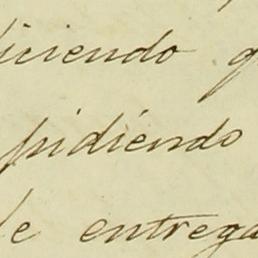 iciendo q
pidiendo
de entrega